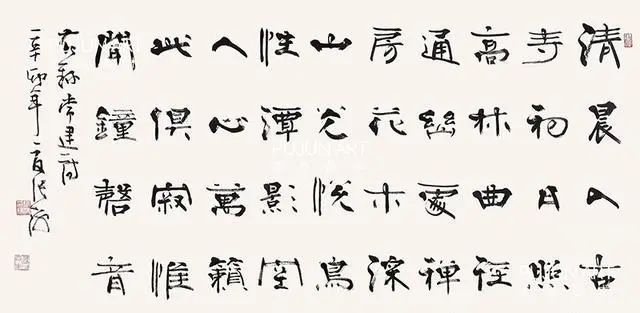 清晨入古
寺初日照
高林曲徑
通幽處禪
房花木深
山光悅鳥
性潭影空
人心萬籟
此俱寂惟
聞鐘磬音
常建詩
辛卯年
PUJUN ART